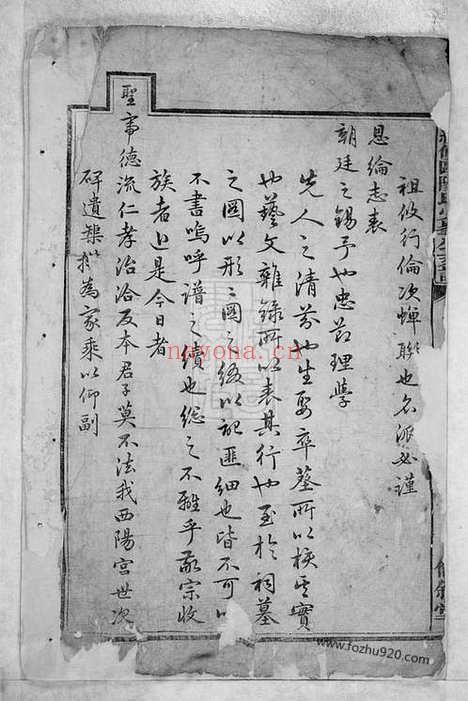 祖攸行倫次蟬聯也名派必謹
恩綸志表
朝廷之錫予也忠節理學
先人之清芬也生娶卒葬所以核其實
也藝文雜錄所以表其行也至於祠墓
之圖以形之圖之後以記匪細也皆不可以
不書嗚呼譜之績也總之不離乎敬宗收
族者近是今日者
聖帝德流仁孝治洽反本君子莫不法我西陽宮世次
碑遺集擬為家乘以仰副
nayona.cn
www.fozhu920.com